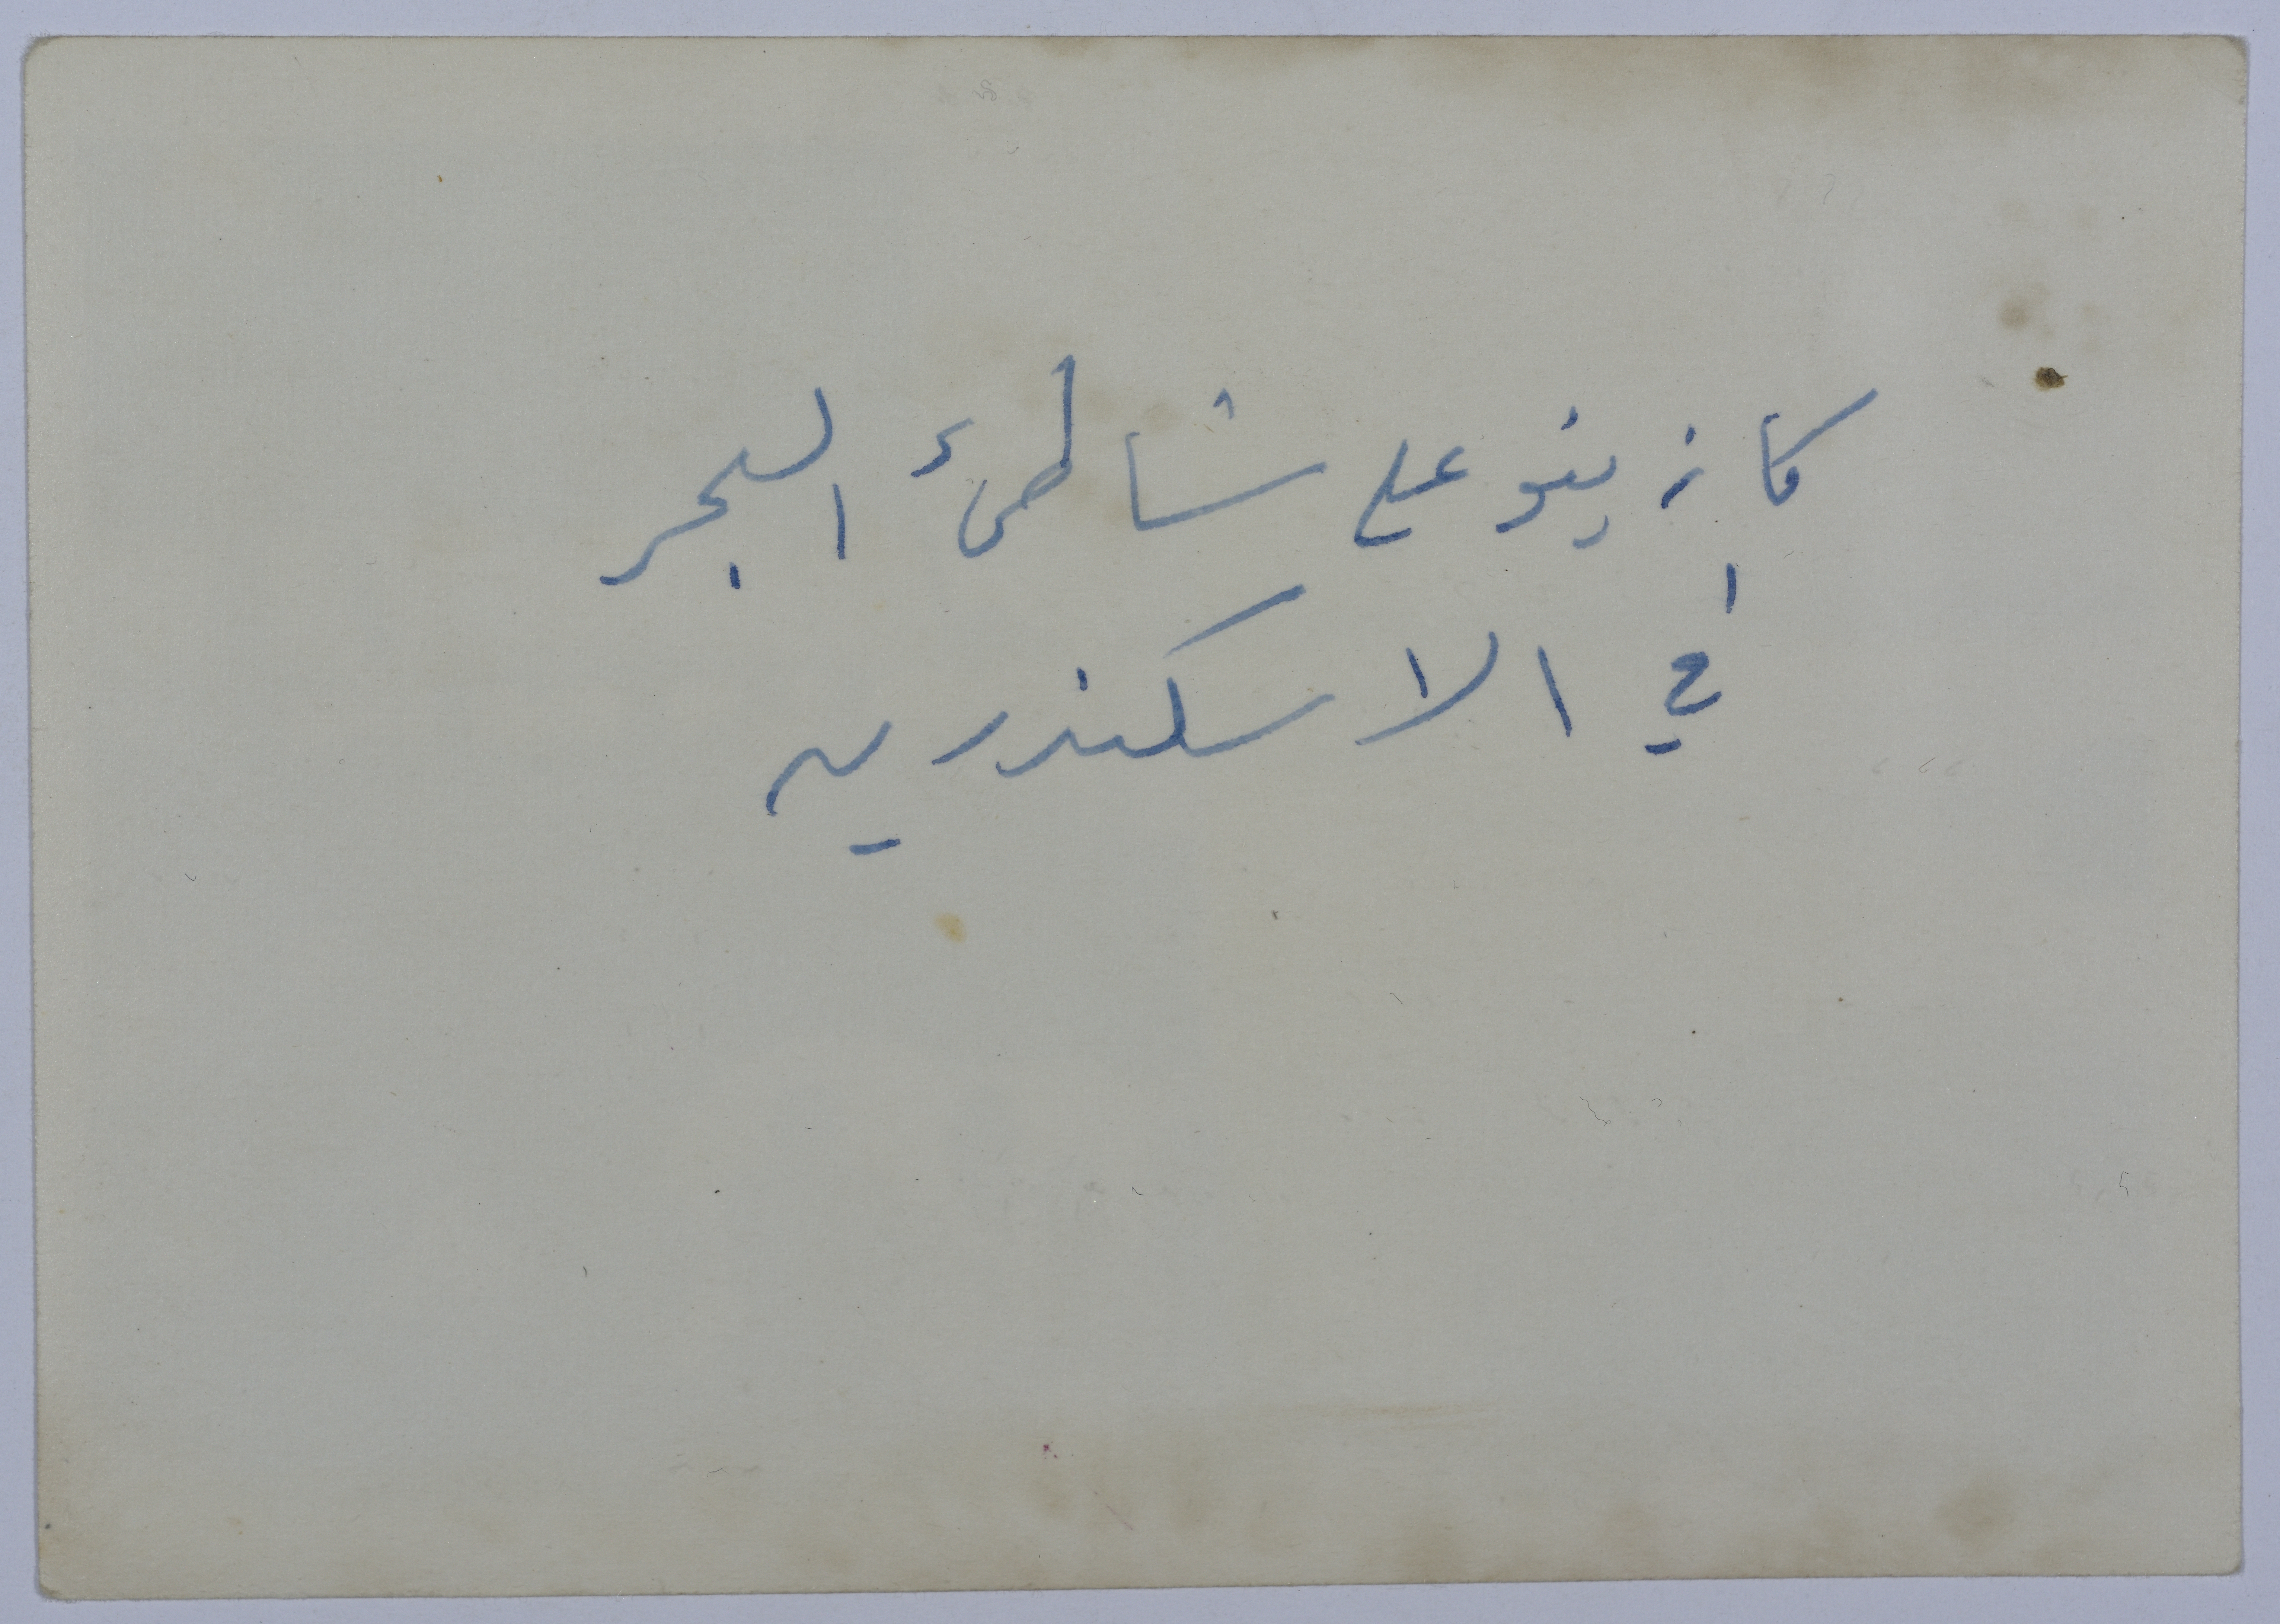 كازينو على شاطىء البحر
في الاسكندريه